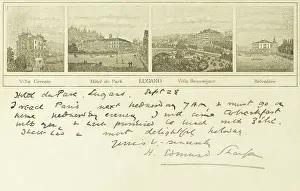 Villa Ceresio Hôtel du Park LUGANO Villa Beauséjour Belvédère
Hotel du Parc, Lugano. Sept 28
I reach Paris next Wednesday 7 AM & must go on
home Wednesday evening I will come & breakfast
with you & have promised to lunch with
a most delightful holiday
Yours v. sincerely
H.